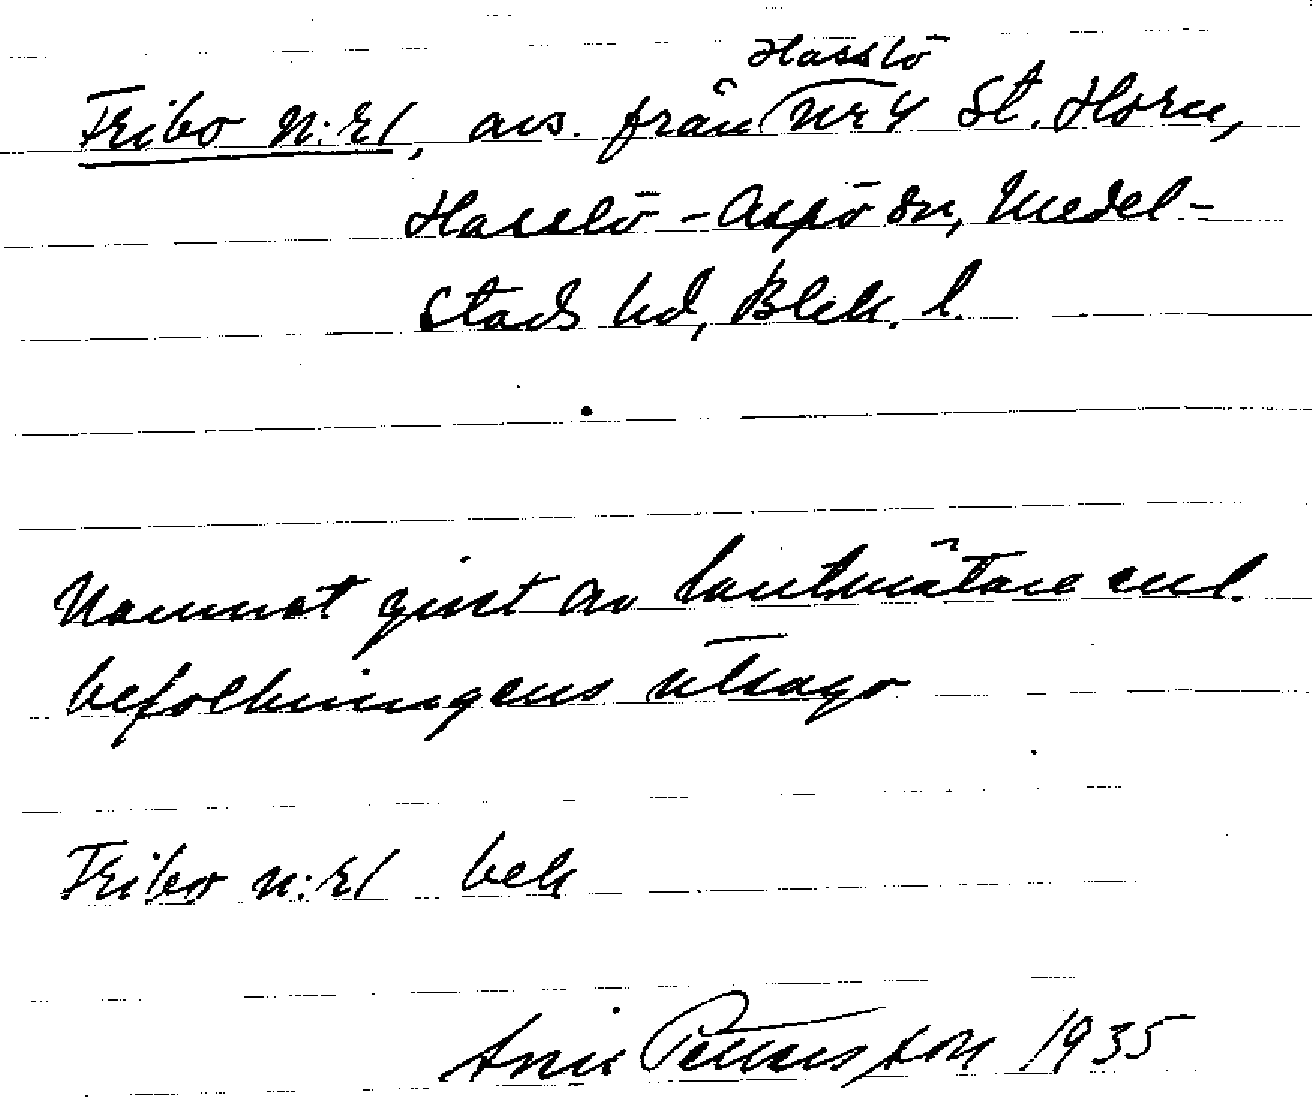 Hasslö
Fribo n:r1, avs. från nr 4 St. Horn,
Hasslö-Aspö sn, Medel-
stads hd, Blek. l.
Namnet givet av lantmätare enl.
befolkningens utsago
Fribo n:r1 bek
Pettersson 1935